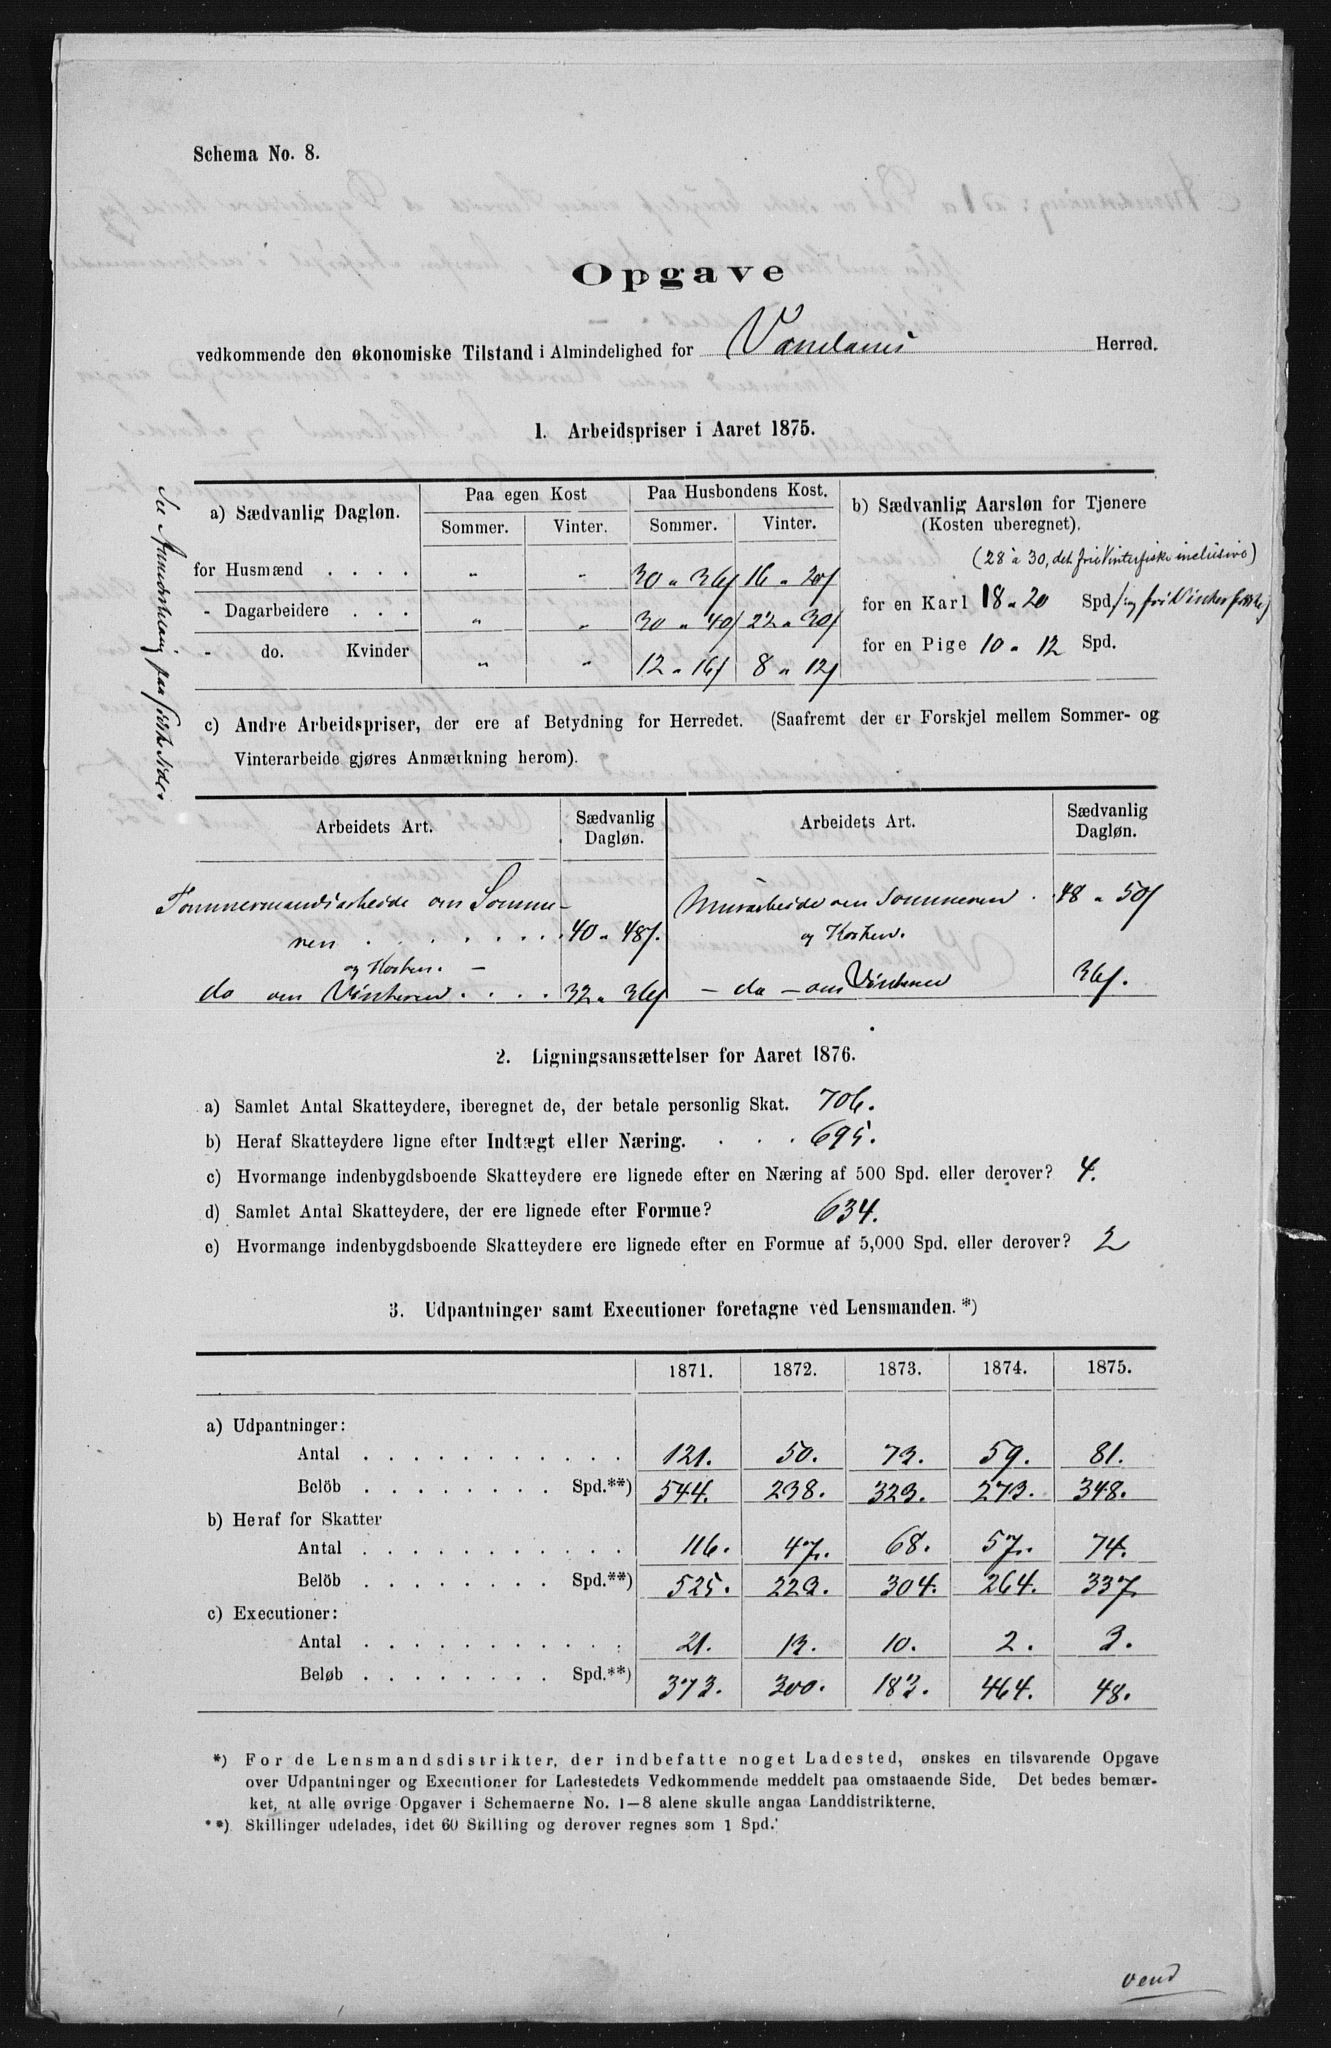 Schema No. 8.
Opgave
vedkommende den økonomiske Tilstand i Almindelighed for Vandanes Herred.
1. Arbeidspriser i Aaret 1875.
a) Sædvanlig Dagløn.
Paa egen Kost
Paa Husbondens Kost.
Sommer. Vinter. Sommer. Vinter.
for Husmænd . . . . " " 30 a 36ʃ 16 a 20ʃ
- Dagarbeidere . . . " " 30 a 40ʃ 22 a 30ʃ
- do. Kvinder " " 12 a 16ʃ 8 a 12ʃ
b) Sædvanlig Aarsløn for Tjenere
(Kosten uberegnet).
(28 à 30, det fri Vinterfiske inclusive)
for en Karl 18 a 20 Spd / og fri Vinterfiske /
for en Pige 10 a 12 Spd.
Se Anmærkning paa sidste Side.
c) Andre Arbeidspriser, der ere af Betydning for Herredet. (Saafremt der er Forskjel mellem Sommer- og
Vinterarbeide gjøres Anmærkning herom).
Arbeidets Art. Sædvanlig Dagløn. Arbeidets Art. Sædvanlig Dagløn.
Tømmermandsarbeide om Somme-
ren . . . . . . . 40 a 48ʃ.
og Kosten. -
do om Vinteren . . . . 32 a 36ʃ
Murarbeide om Sommeren . 48 a 50ʃ
og Kosten.
- do - om Vinteren 36ʃ.
2. Ligningsansættelser for Aaret 1876.
a) Samlet Antal Skatteydere, iberegnet de, der betale personlig Skat. 706.
b) Heraf Skatteydere ligne efter Indtægt eller Næring. . . . 695.
c) Hvormange indenbygdsboende Skatteydere ere lignede efter en Næring af 500 Spd. eller derover? 4.
d) Samlet Antal Skatteydere, der ere lignede efter Formue? 634.
e) Hvormange indenbygdsboende Skatteydere ere lignede efter en Formue af 5,000 Spd. eller derover? 2
3. Udpantninger samt Executioner foretagne ved Lensmanden.*)
1871. 1872. 1873. 1874. 1875.
a) Udpantninger:
Antal . . . . . . . . . . . 121. 50. 73. 59. 81.
Belöb . . . . . . . . Spd.**) 544. 238. 323. 273. 348.
b) Heraf for Skatter
Antal . . . . . . . . . . . 116. 47. 68. 57. 74.
Belöb . . . . . . . . Spd.**) 525. 223. 304. 264. 337.
c) Executioner:
Antal . . . . . . . . . . . 21. 13. 10. 2. 3.
Beløb . . . . . . . . Spd.**) 373. 300. 183. 464. 48.
*) For de Lensmandsdistrikter, der indbefatte noget Ladested, ønskes en tilsvarende Opgave
over Udpantninger og Executioner for Ladestedets Vedkommende meddelt paa omstaaende Side. Det bedes bemær-
ket, at alle øvrige Opgaver i Schemaerne No. 1–8 alene skulle angaa Landdistrikterne.
**) Skillinger udelades, idet 60 Skilling og derover regnes som 1 Spd.
vend